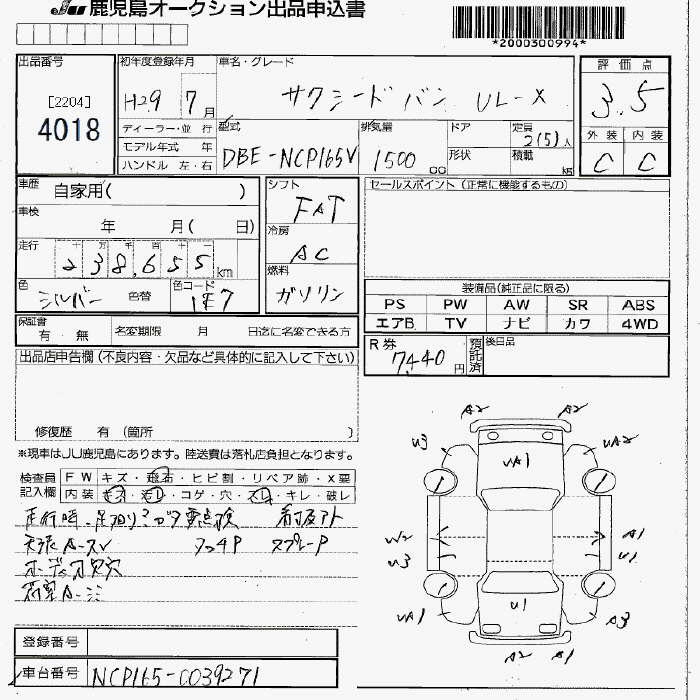 鹿児島オークション出品申込書
*2000300994*
出品番号
[2204]
4018
初年度登録年月
H29 7月
車名・グレード
サクシードバン UL-X
評価点
3.5
外装 内装
C C
ディーラー・並行
モデル年式 年
ハンドル 左・右
型式
DBE-NCP165V
排気量
1500 cc
ドア
形状
定員
2(5)人
積載
kg
車歴
自家用( )
車検
年 月( 日)
走行
十 万 千 百 十 一
238,655 km
色
シルバー 色替
色コード
1E7
シフト
FAT
冷房
AC
燃料
ガソリン
セールスポイント(正常に機能するもの)
装備品(純正品に限る)
PS PW AW SR ABS
エアB TV ナビ カワ 4WD
保証書
有・無
名変期限 月 日迄に名変できる方
R券
7,440円
預託済
後日品
出品店申告欄(不良内容・欠品など具体的に記入して下さい)
修復歴 有(箇所 )
※現車はJU鹿児島にあります。陸送費は落札店負担となります。
検査員
記入欄
FW キズ・飛石・ヒビ割・リペア跡・X要
内装 キズ・汚レ・コゲ・穴・スレ・キレ・破レ
走行時、足廻りゴロツキ要点検
天張A-スレ
スプレーP
ボディ刀
荷室A-
A2 A2
U3 UA2
UA1
W2 A1
U3 U1
UA1 U1 A3
A2 A1
登録番号
車台番号
NCP165-0039271